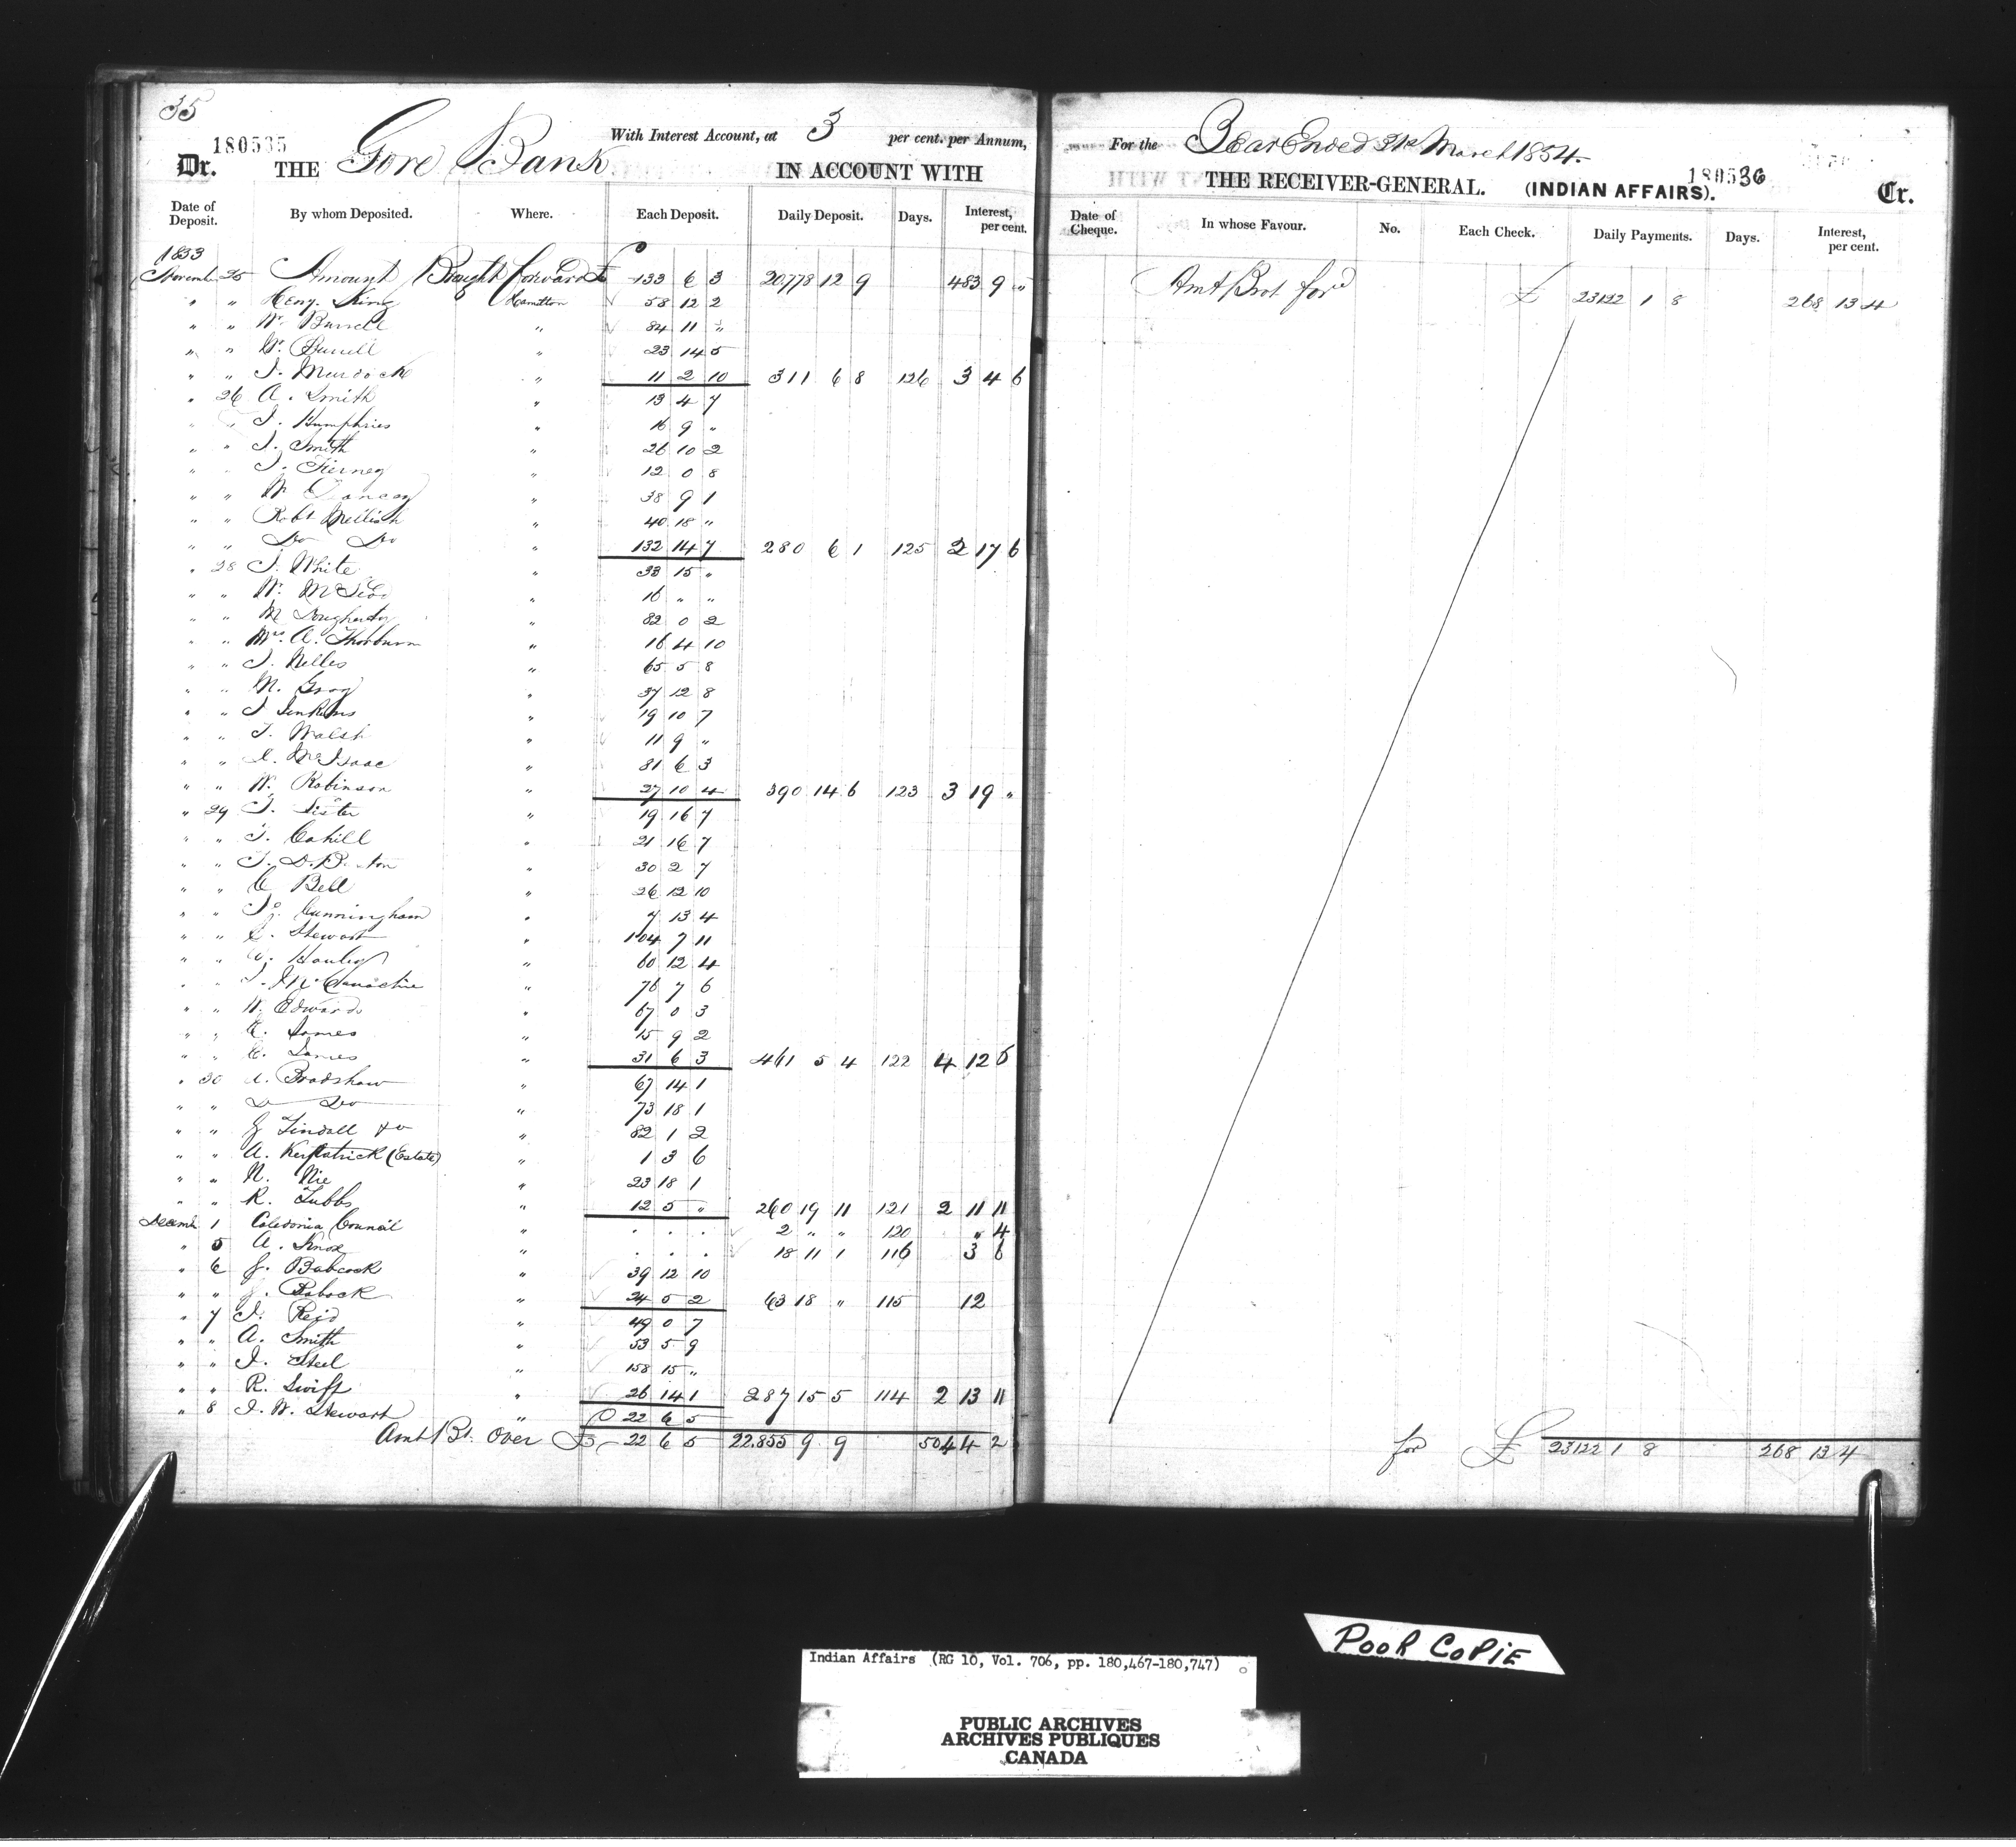 35
180535
With Interest Account, at 3 per cent. per Annum,
Dr. THE Gore Bank IN ACCOUNT WITH
Date of Deposit. By whom Deposited. Where. Each Deposit. Daily Deposit. Days. Interest, per cent.
1853
November 25 Amount Brought forward £ 133 6 3 20,778 12 9 483 9 "
" " Heny. King Hamilton 58 12 2
" " Wm. Burrell " 84 11 "
" " Wm. Burrell " 23 14 5
" " J. Murdock " 11 2 10 311 6 8 126 3 4 6
" 26 A. Smith " 13 4 7
" " J. Humphries " 16 9 "
" " J. Smith " 26 10 2
" " J. Tierney " 12 0 8
" " W " 38 9 1
" " Robt Mellish " 40 18 "
" " Do Do " 132 14 7 280 6 1 125 2 17 6
" 28 J. White " 33 15 "
" " W. " 16 " "
" " M Dougherty " 82 0 2
" " Mrs. A. Thorburn " 16 4 10
" " J. Nelles " 65 5 8
" " M. Gray " 37 12 8
" " J Jenkins " 19 10 7
" " J. Walsh " 11 9 "
" " McIsaac " 81 6 3
" " W. Robinson " 27 10 4 390 14 6 123 3 19 "
" 29 J. Lister " 19 16 7
" " T. Cahill " 21 16 7
" " " 30 2 7
" " C Bell " 26 12 10
" " Cunningham " 7 13 4
" " C. Stewart " 104 7 11
" " " 60 12 4
" " " 76 7 6
" " W. Edwards " 67 0 3
" " E. James " 15 9 2
" " E. James " 31 6 3 461 5 4 122 4 12 6
" 30 A. Bradshaw " 67 14 1
" " Do Do " 73 18 1
" " G Tindall " 82 1 2
" " A. Kerpatrick (Estate) " 1 3 6
" " N. Nie " 23 18 1
" " R. Tubbs " 12 5 " 260 19 11 121 2 11 11
Decemb 1 Caledonia Council " . . . 2 " " 120 " 4
" 5 A. Knox " . . . 18 11 1 116 3 6
" 6 J. Babcock " 39 12 10
" " J. Babock " 24 5 2 63 18 " 115 12
" 7 J. Reid " 49 0 7
" " A. Smith " 53 5 9
" " J. Steel " 158 15 "
" " R. Swift " 26 14 1 287 15 5 114 2 13 11
" 8 J. W. Stewart " 22 6 5
Amt Bt. over £ 22 6 5 22,855 9 9 504 4 2
For the Year Ended 31st March 1854.
180536
THE RECEIVER-GENERAL. (INDIAN AFFAIRS). Cr.
Date of Cheque. In whose Favour. No. Each Check. Daily Payments. Days. Interest, per cent.
Amt Brot ford £ 23122 1 8 268 13 4
for £ 23122 1 8 268 13 4
POOR COPIE
Indian Affairs (RG 10, Vol. 706, pp. 180,467-180,747)
PUBLIC ARCHIVES
ARCHIVES PUBLIQUES
CANADA